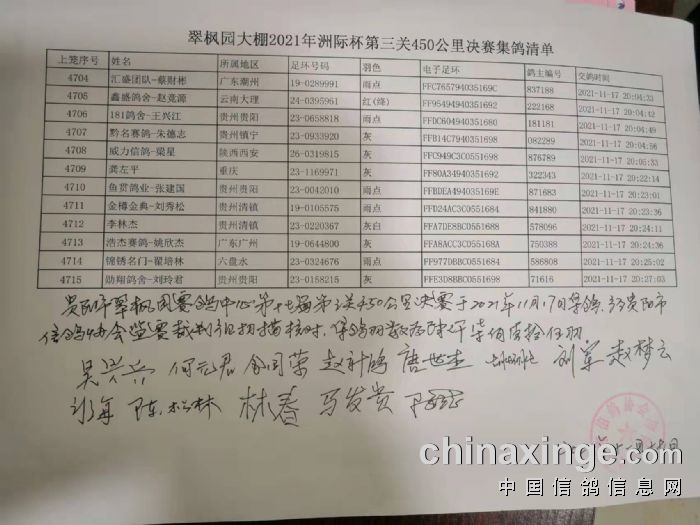 翠枫园大棚2021年洲际杯第三关450公里决赛集鸽清单
上笼序号 姓名 所属地区 足环号码 羽色 电子足环 鸽主编号 交鸽时间
4704 汇盛团队-蔡财彬 广东潮州 19-0289991 雨点 FFC765794035169C 837188 2021-11-17 20:04:33
4705 鑫盛鸽舍-赵竞源 云南大理 24-0395961 红(绛) FF95494940351692 222168 2021-11-17 20:04:42
4706 181鸽舍-王兴江 贵州贵阳 23-0658818 雨点 FFDC604940351680 181181 2021-11-17 20:04:49
4707 黔名赛鸽-朱德志 贵州镇宁 23-0933920 灰 FFB14C7940351698 082289 2021-11-17 20:04:56
4708 威力信鸽-梁星 陕西西安 26-0319815 灰 FFC949C3C0551698 876789 2021-11-17 20:05:33
4709 龚左平 重庆 23-1169971 灰 FF80A34940351692 322343 2021-11-17 20:22:14
4710 鱼贯鸽业-张建国 贵州贵阳 23-0042010 雨点 FFBDEA494035169E 871683 2021-11-17 20:23:01
4711 金樽金典-刘秀松 贵州清镇 23-0190115 雨点 FFD24AC3C0551684 841880 2021-11-17 20:23:36
4712 李林杰 贵州清镇 23-0220367 灰白 FFA7DE8BC0551688 578096 2021-11-17 20:24:11
4713 浩杰赛鸽-姚欣杰 广东广州 19-0644800 灰 FFA8ACC3C055168A 750388 2021-11-17 20:24:36
4714 锦锈名门-翟培林 六盘水 23-0324676 雨点 FF977DB8C0551684 586808 2021-11-17 20:25:02
4715 勋翔鸽舍-刘玲君 贵州贵阳 23-0158215 灰 FFE3D8BBC0551698 71616 2021-11-17 20:27:03
贵阳市翠枫园赛鸽中心第十七届第三关450公里决赛于2021年11月17日集鸽,经贵阳市
信鸽协会监赛裁判组扫描核对,集鸽羽数为肆仟柒佰壹拾伍羽。
吴兴兴 何元君 赵科鹏 唐世杰 刘军 赵梦云
陈松林 林春 马发贵
chinaxinge.com
中国信鸽信息网